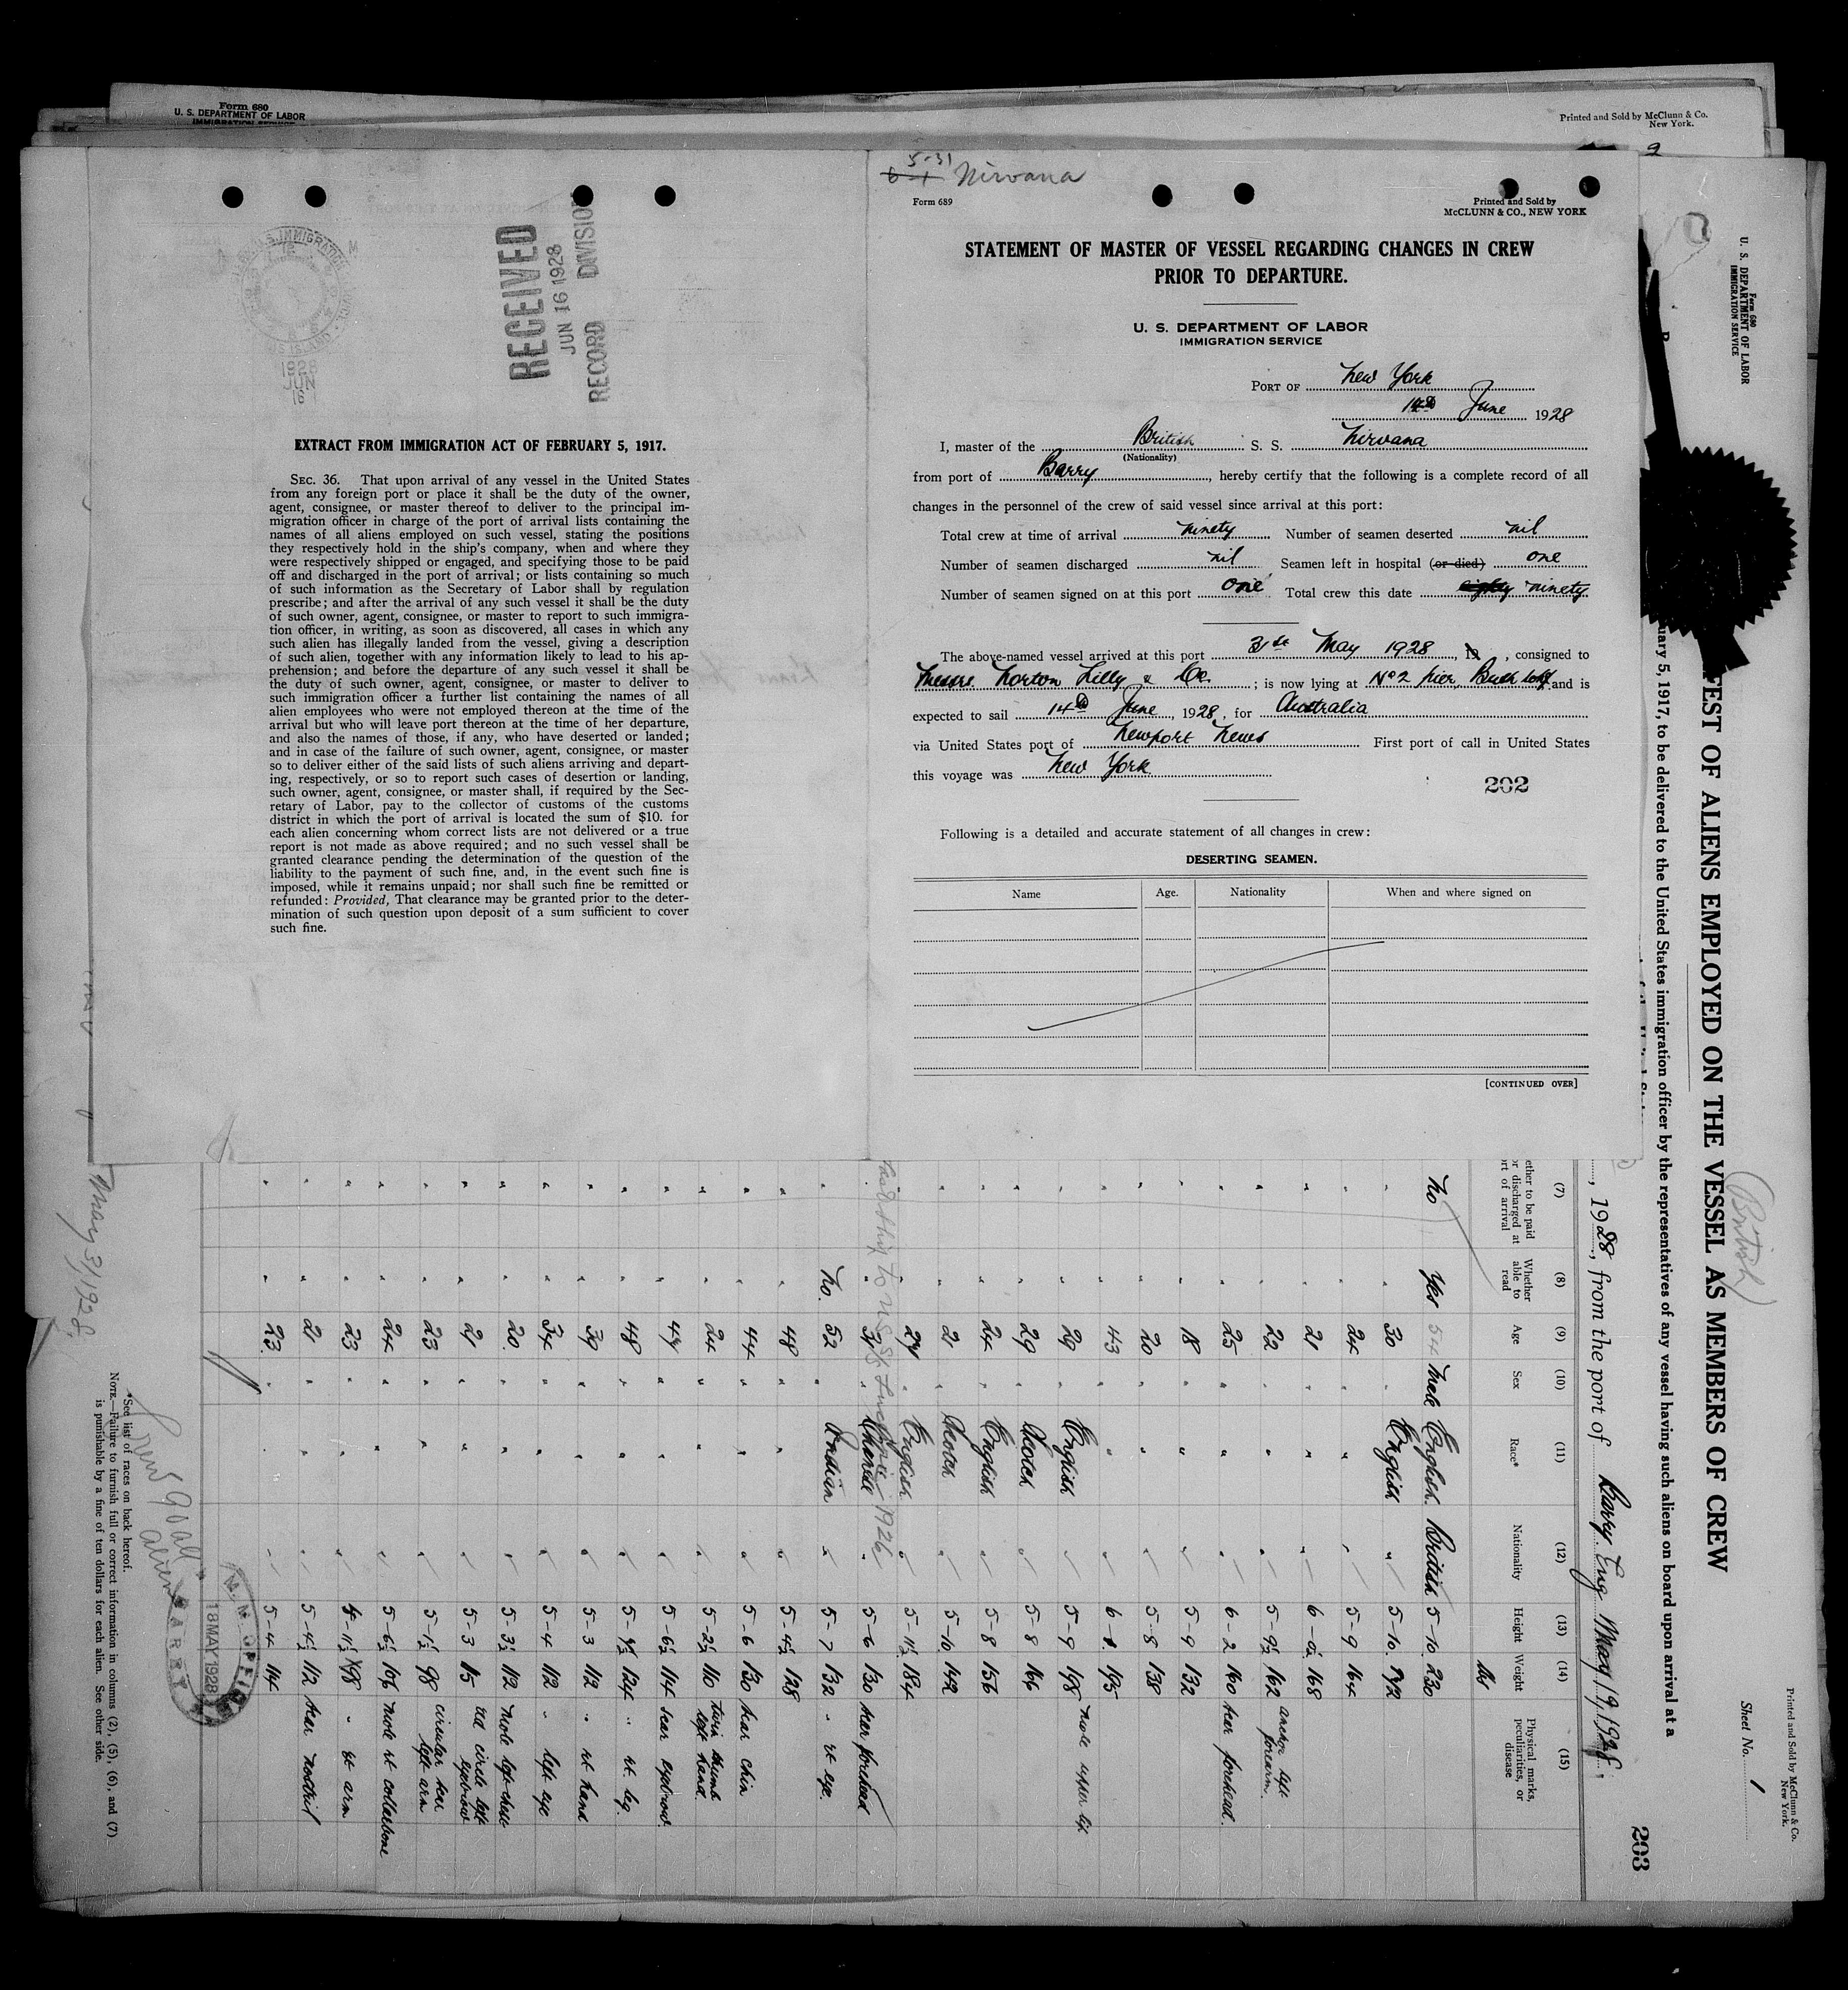 Form 680
U. S. DEPARTMENT OF LABOR
IMMIGRATION SERVICE
Printed and Sold by McClunn & Co.
New York.
2
RECEIVED
JUN 16 1928
RECORD DIVISION
1928
JUN
16
EXTRACT FROM IMMIGRATION ACT OF FEBRUARY 5, 1917.
SEC. 36. That upon arrival of any vessel in the United States
from any foreign port or place it shall be the duty of the owner,
agent, consignee, or master thereof to deliver to the principal im-
migration officer in charge of the port of arrival lists containing the
names of all aliens employed on such vessel, stating the positions
they respectively hold in the ship's company, when and where they
were respectively shipped or engaged, and specifying those to be paid
off and discharged in the port of arrival; or lists containing so much
of such information as the Secretary of Labor shall by regulation
prescribe; and after the arrival of any such vessel it shall be the duty
of such owner, agent, consignee, or master to report to such immigra-
tion officer, in writing, as soon as discovered, all cases in which any
such alien has illegally landed from the vessel, giving a description
of such alien, together with any information likely to lead to his ap-
prehension; and before the departure of any such vessel it shall be
the duty of such owner, agent, consignee, or master to deliver to
such immigration officer a further list containing the names of all
alien employees who were not employed thereon at the time of the
arrival but who will leave port thereon at the time of her departure,
and also the names of those, if any, who have deserted or landed;
and in case of the failure of such owner, agent, consignee, or master
so to deliver either of the said lists of such aliens arriving and depart-
ing, respectively, or so to report such cases of desertion or landing,
such owner, agent, consignee, or master shall, if required by the Sec-
retary of Labor, pay to the collector of customs of the customs
district in which the port of arrival is located the sum of $10. for
each alien concerning whom correct lists are not delivered or a true
report is not made as above required; and no such vessel shall be
granted clearance pending the determination of the question of the
liability to the payment of such fine, and, in the event such fine is
imposed, while it remains unpaid; nor shall such fine be remitted or
refunded: Provided, That clearance may be granted prior to the deter-
mination of such question upon deposit of a sum sufficient to cover
such fine.
5-31
6-1 Nirvana
Form 689
Printed and Sold by
McCLUNN & CO., NEW YORK
STATEMENT OF MASTER OF VESSEL REGARDING CHANGES IN CREW
PRIOR TO DEPARTURE.
U. S. DEPARTMENT OF LABOR
IMMIGRATION SERVICE
PORT OF New York
14th June 1928
I, master of the British S. S. Nirvana
(Nationality)
from port of Barry, hereby certify that the following is a complete record of all
changes in the personnel of the crew of said vessel since arrival at this port:
Total crew at time of arrival ninety Number of seamen deserted nil
Number of seamen discharged nil Seamen left in hospital (or died) one
Number of seamen signed on at this port one Total crew this date eighty ninety
The above-named vessel arrived at this port 31st May 1928, 19, consigned to
Messrs. Norton Lilly & Co. ; is now lying at No 2 pier, Bush and is
expected to sail 14th June, 1928, for Australia
via United States port of Newport News First port of call in United States
this voyage was New York
202
Following is a detailed and accurate statement of all changes in crew:
DESERTING SEAMEN.
Name Age. Nationality When and where signed on
[CONTINUED OVER]
Form 680
U. S. DEPARTMENT OF LABOR
IMMIGRATION SERVICE
Printed and Sold by McClunn & Co.
New York.
Sheet No. 1
(British)
FEST OF ALIENS EMPLOYED ON THE VESSEL AS MEMBERS OF CREW
uary 5, 1917, to be delivered to the United States immigration officer by the representatives of any vessel having such aliens on board upon arrival at a
203
, 1928, from the port of Barry Eng May 19, 1928.
(7) (8) (9) (10) (11) (12) (13) (14) (15)
ether to be paid
or discharged at
rt of arrival
Whether
able to
read
Age
Sex
Race*
Nationality
Height
Weight
Physical marks,
peculiarities, or
disease
lbs
No Yes 54 Male English British 5-10 230
30 " English " 5-10
24 " " " 5-9 164
21 " " " 6-0½ 168
22 " " " 5-9½ 162 anchor left forearm
25 " " " 6-2 160 scar forehead.
18 " " " 5-9 132
20 " " " 5-8 138
43 " " " 6-1 195
29 " English " 5-9 198 mole upper lip
29 " Scotch " 5-8 166
24 " English " 5-8 156
21 " Scotch " 5-10 142
27 " English " 5-11½ 184
" Chinese " 5-6 130 scar forehead
No. 52 " Indian " 5-7 132 " rt eye.
48 " " " 5-4½ 128
44 " " " 5-6 130 scar chin
24 " " " 5-2½ 110 twin thumb left hand
" " " 5-6½ 114 scar eyebrow
48 " " " 124 " rt leg.
39 " " " 5-3 112 " rt hand
34 " " " 5-4 112 " left eye
20 " " " 5-3½ 112 mole left chest
21 " " " 5-3 115 left eyebrow
23 " " " 5-1½ 98 circular scar left arm
24 " " " 5-6½ 106 mole rt collarbone
23 " " " 98 " rt arm
21 " " " 5-4½ 112 scar nostril
23 " " " 5-4 114
1926
May 31 1928
Crew 90 all
alien
BARRY
18 MAY 1928
*See list of races on back hereof.
NOTE.—Failure to furnish full or correct information in columns (2), (5), (6), and (7)
is punishable by a fine of ten dollars for each alien. See other side.